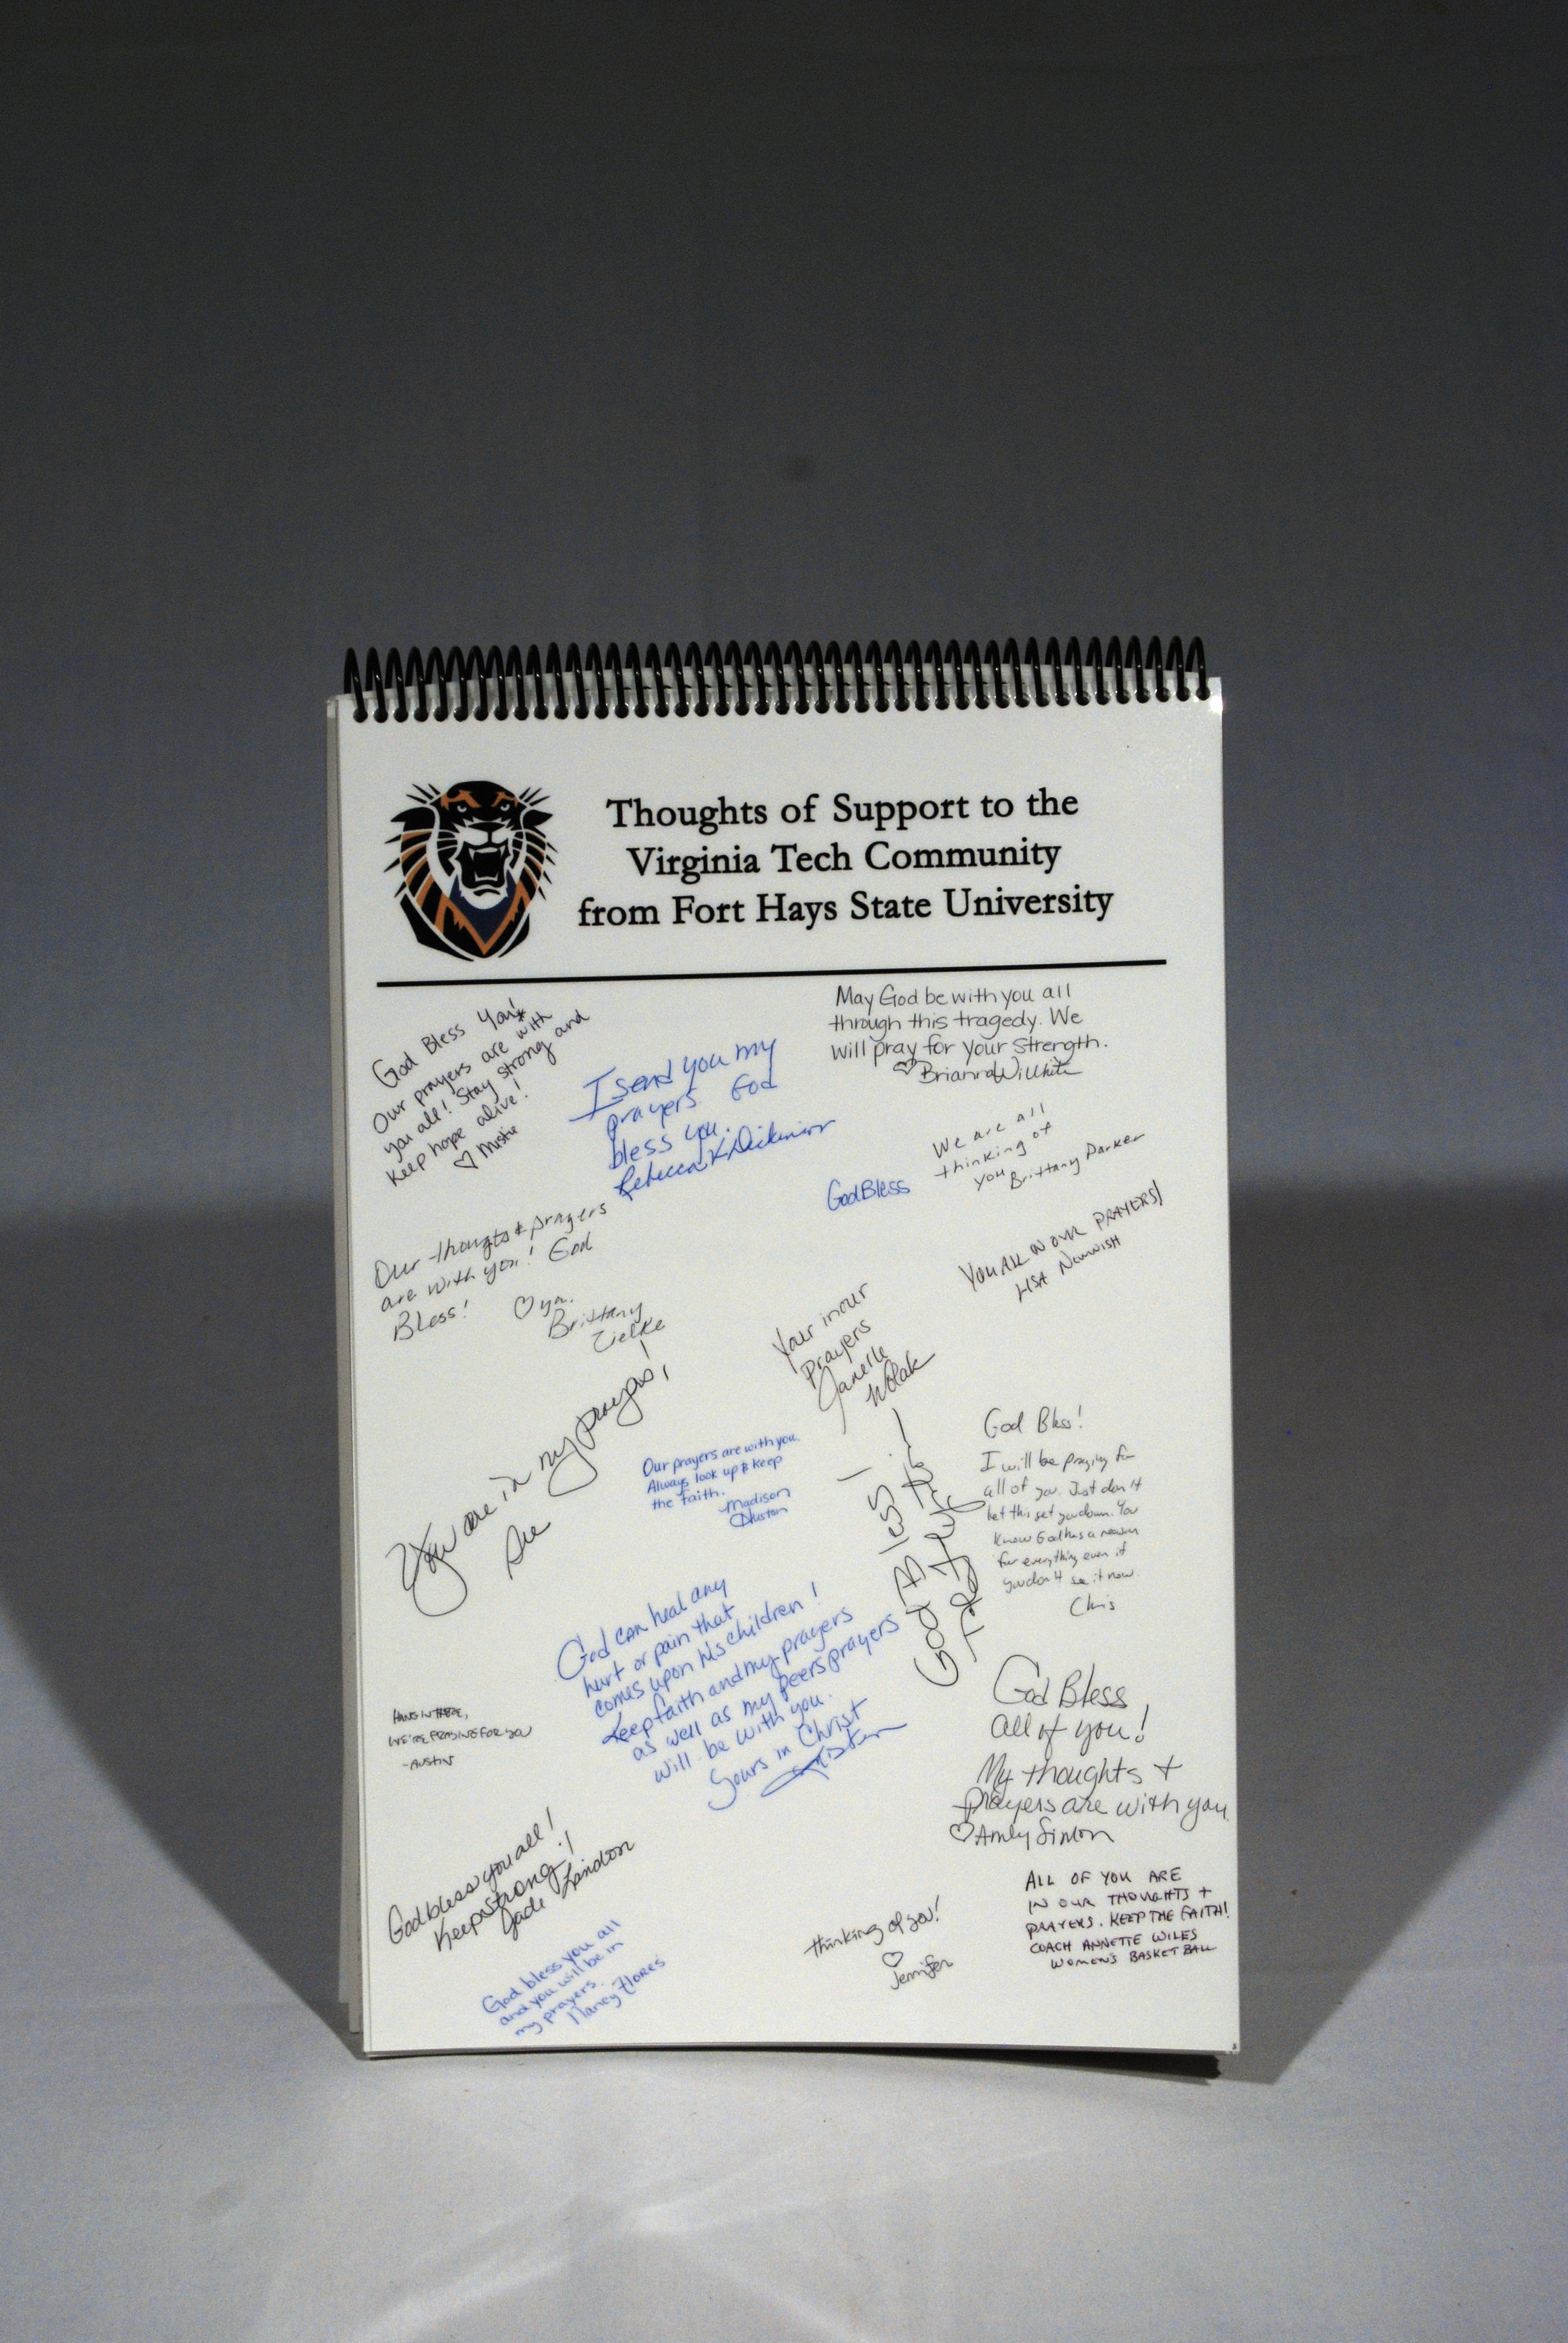 Thoughts of Support to the
Virginia Tech Community
from Fort Hays State University
God Bless You!
Our prayers are with
you all! Stay strong and
keep hope alive!
♡ Mistie
I send you my
prayers. God
bless you.
Rebecca K Dickinson
May God be with you all
through this tragedy. We
will pray for your strength.
♡ Brianna Willhite
God Bless
We are all
thinking of
you Brittany Parker
Our thoughts & prayers
are with you! God
Bless!
♡ ya.
Brittany
Zielke
You ARE IN OUR PRAYERS!
LISA
Your in our
Prayers
Janelle
Wolak
You are in my prayers!
Sue
Our prayers are with you.
Always look up & keep
the faith.
Madison
Huston
God Bless!
God Bless!
I will be praying for
all of you. Just don't
let this get you down. You
know God has a reason
for everything even if
you don't see it now.
Chris
God can heal any
hurt or pain that
comes upon his children!
Keep faith and my prayers
as well as my peers prayers
will be with you.
Yours in Christ
Kristen
HANG IN THERE,
WE'RE PRAYING FOR YOU
-AUSTIN
God Bless
all of you!
My thoughts +
prayers are with you
♡ Amly Simon
God bless you all!
Keep strong!
Jade Lindon
God bless you all
and you will be in
my prayers.
Nancy Flores
thinking of you!
♡
Jennifer
ALL OF YOU ARE
IN OUR THOUGHTS +
PRAYERS. KEEP THE FAITH!
COACH ANNETTE WILES
WOMEN'S BASKETBALL